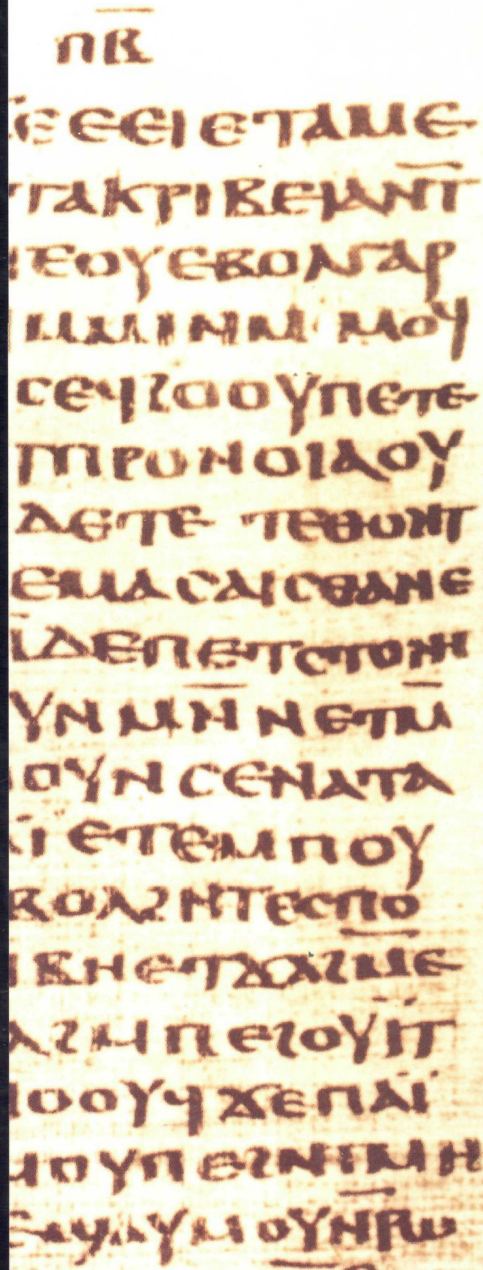 ⲡ̅ⲃ̅
ⲉⲉⲉⲓⲉⲧⲁⲙⲉ
ⲧⲁⲕⲣⲓⲃⲉⲓⲁⲛ̅ⲧ̅
ⲧⲉⲟⲩⲉⲃⲟⲗⲅⲁⲣ
ⲙⲙⲓⲛⲙ ⲙⲟⲩ
ⲥⲉϥϩⲟⲟⲩⲡⲉⲧⲉ
ⲡⲣⲟⲛⲟⲓⲁⲟⲩ
ⲇⲉⲧⲉ ⲧⲉⲑⲟⲛⲧ
ⲉⲙⲁⲥⲁⲓⲥⲑⲁⲛⲉ
ⲇⲉⲡⲉⲧⲥⲧⲟⲛ
ⲩⲛⲙⲛ̅ⲛⲉⲧⲙ̅
ⲟⲩⲛⲥⲉⲛⲁⲧⲁ
ⲓ̈ⲉⲧⲉⲙⲡⲟⲩ
ⲃⲟⲗϩⲛⲧⲉⲥⲡⲟ
ⲃⲏⲉⲧϫⲁϩⲙ̅ⲉ
ⲗϩⲙⲡⲉϩⲟⲩⲓ̈ⲧ
ⲟⲟⲩϥϫⲉⲡⲁⲓ̈
ⲙⲟⲩⲡⲉϩⲛⲧⲙⲏ
ⲁⲩⲙⲟⲩⲛ̅ⲣⲱ